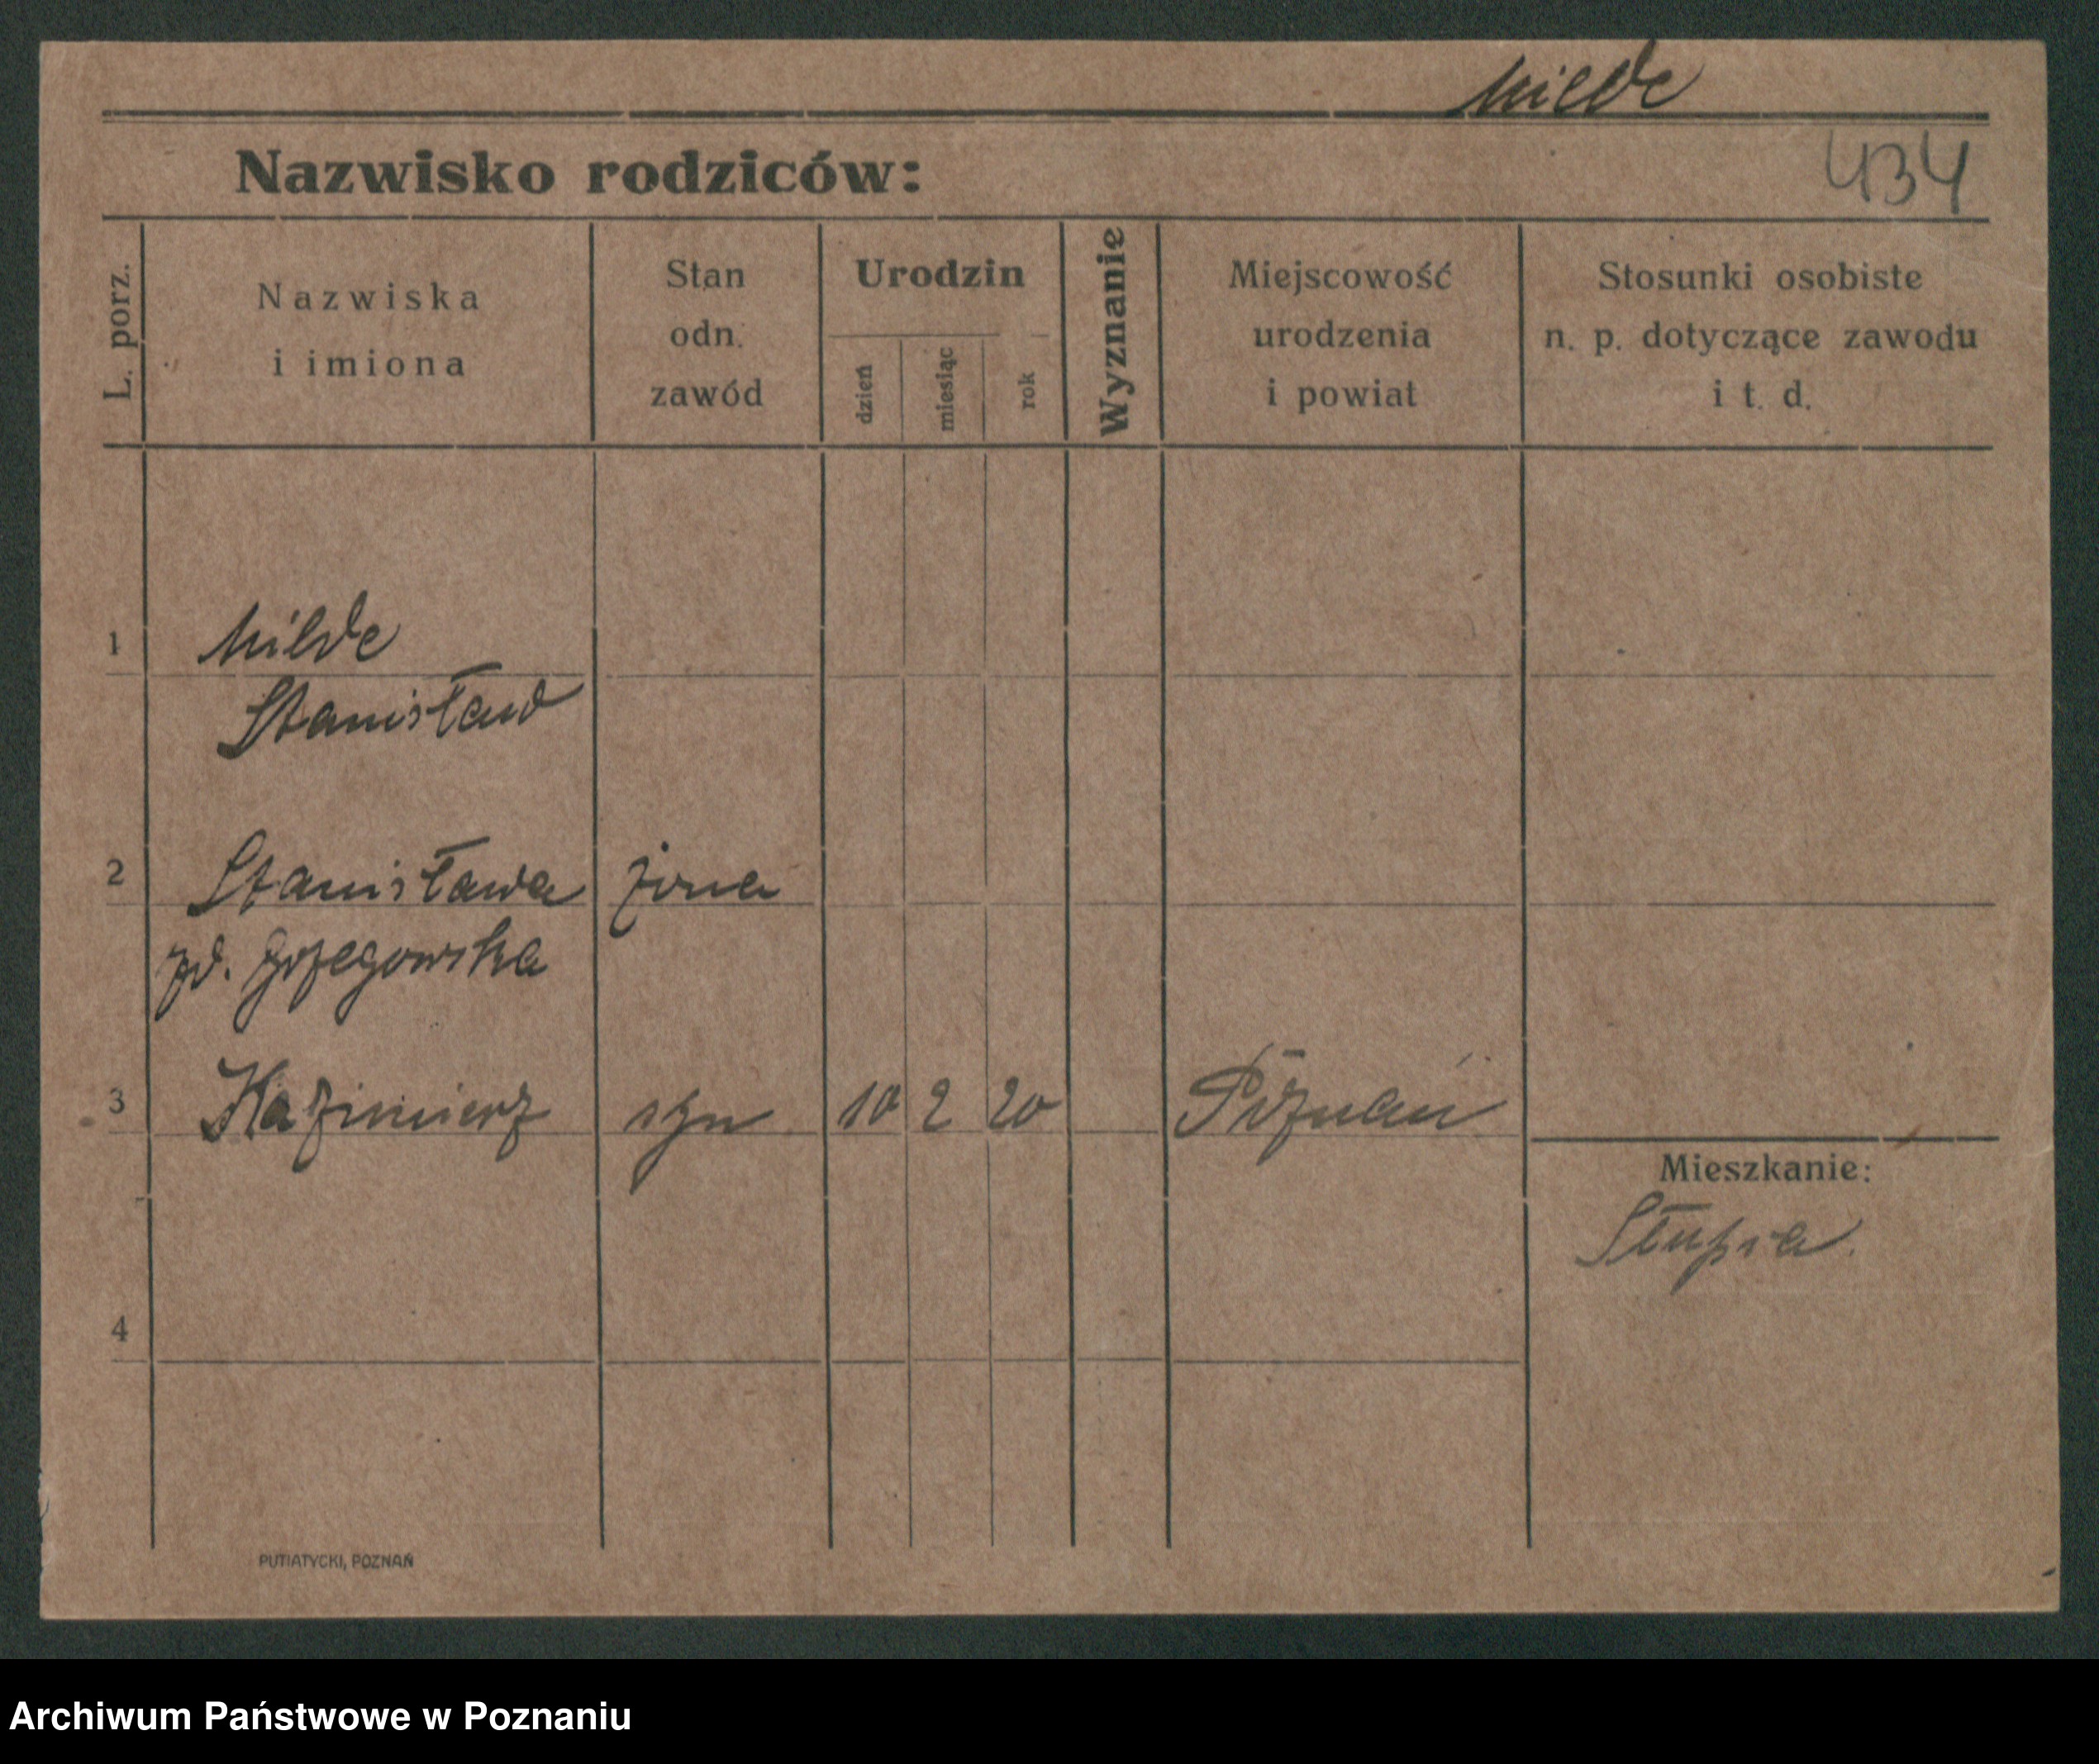 Milde
Nazwisko rodziców:
434
L. porz.
Nazwiska
i imiona
Stan
odn.
zawód
Urodzin
dzień
miesiąc
rok
Wyznanie
Miejscowość
urodzenia
i powiat
Stosunki osobiste
n. p. dotyczące zawodu
i t. d.
1 Milde
Stanisław
2 Stanisława żona
zd. Grzegowska
3 Kazimierz syn 10 2 20 Poznań
Mieszkanie:
Słupia.
4
PUTIATYCKI, POZNAŃ
Archiwum Państwowe w Poznaniu